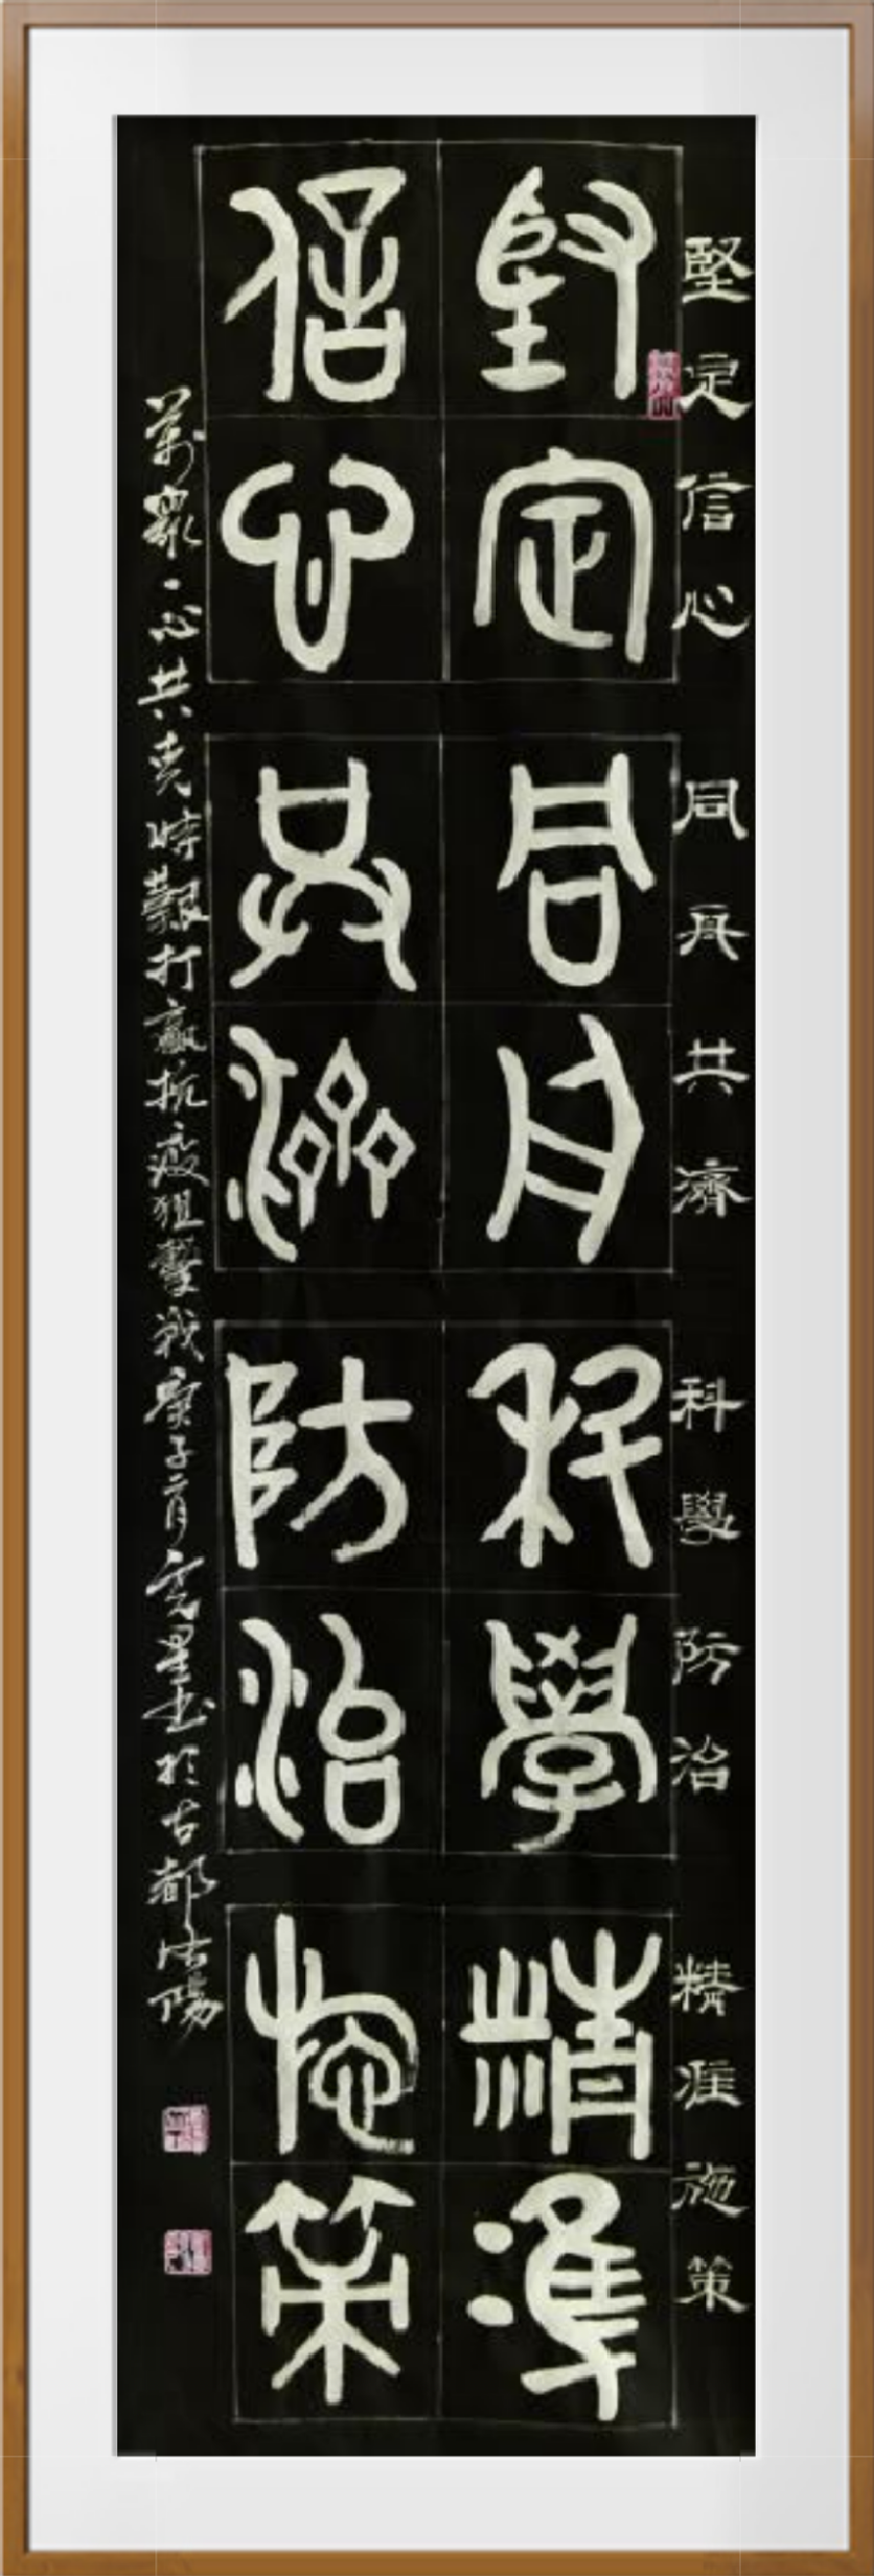 堅定信心同舟共濟科學防治精准施策
堅定
信心
同舟
共濟
科學
防治
精準
施策
萬衆一心共克時艱打贏抗疫狙擊戰庚子二月星書於古都洛陽